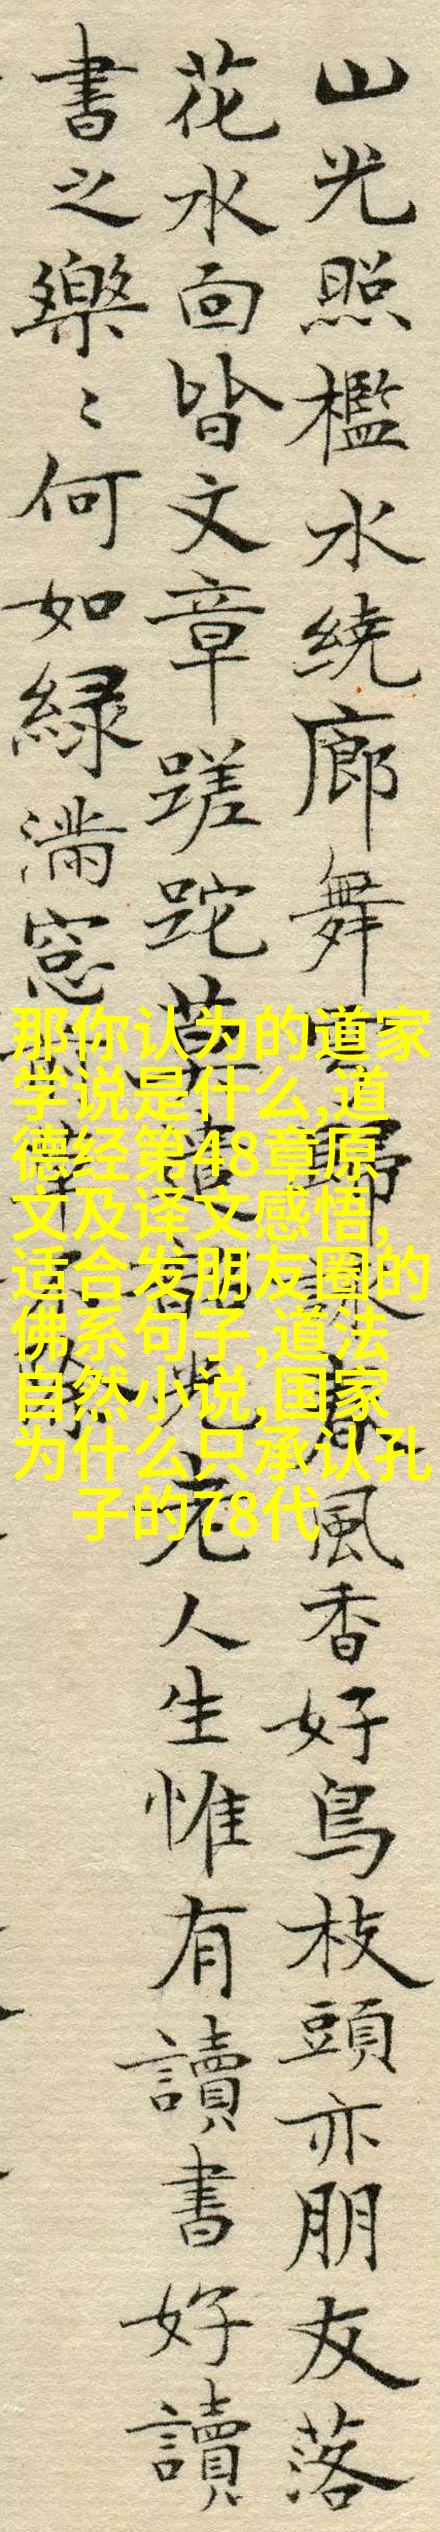 山光照檻水繞廊舞雩歸詠春風香好鳥枝頭亦朋友落
花水面皆文章蹉跎莫遣韶光老人生惟有讀書好讀
書之樂〻何如綠滿窓前草不除
那你认为的道家
学说是什么,道
德经第48章原
文及译文感悟,
适合发朋友圈的
佛系句子,道法
自然小说,国家
为什么只承认孔
子的78代